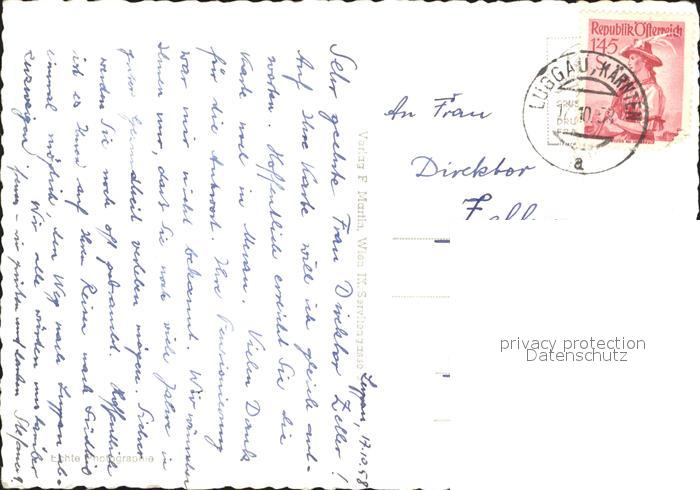 Luggau, 17.10.58
Sehr geehrte Frau Direktor Zeller!
Auf Ihre Karte will ich gleich ant-
worten. Hoffentlich erreicht Sie die
Karte noch in Meran. Vielen Dank
für die Antwort. Ihre Pensionierung
war mir nicht bekannt. Wir wünschen
Ihnen nur, dass Sie noch viele Jahre in
guter Gesundheit verleben mögen. Sicher
werden Sie noch oft gebraucht. Hoffentlich
ist es Ihnen auf Ihren Reisen nach Südtirol
einmal möglich, den Weg nach Luggau ab-
zuzweigen. Wir alle würden uns darüber
freuen
Echte Photographie
Verlag F. Martin, Wien IX. Servitengasse
Republik Österreich
1.45
S
LUGGAU, KÄRNTEN
10.58
a
An Frau
Direktor
privacy protection
Datenschutz